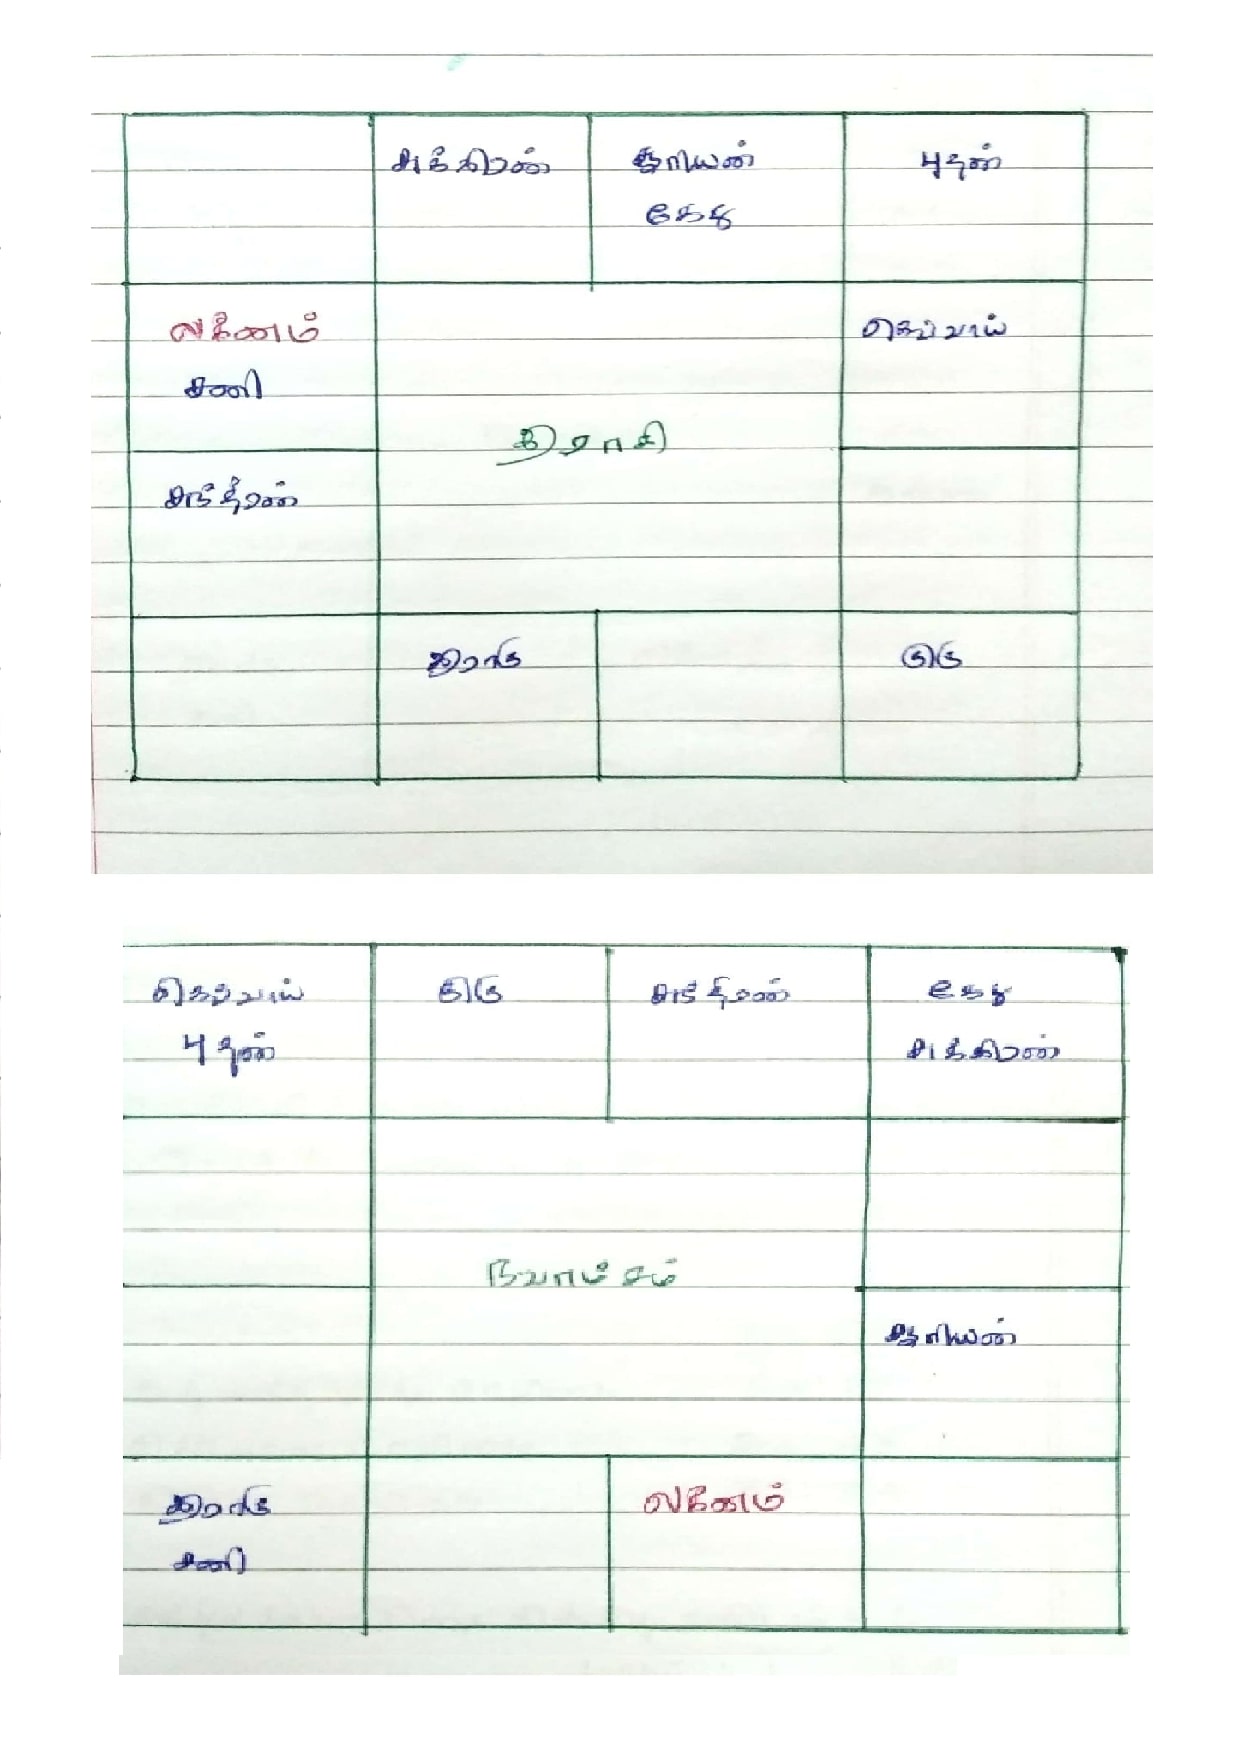 சுக்கிரன் சூரியன் புதன்
கேது
லக்னம் செவ்வாய்
சனி
இராசி
சந்திரன்
இராகு குரு
செவ்வாய் குரு சந்திரன் கேது
புதன் சுக்கிரன்
நவாம்சம்
சூரியன்
இராகு லக்னம்
சனி